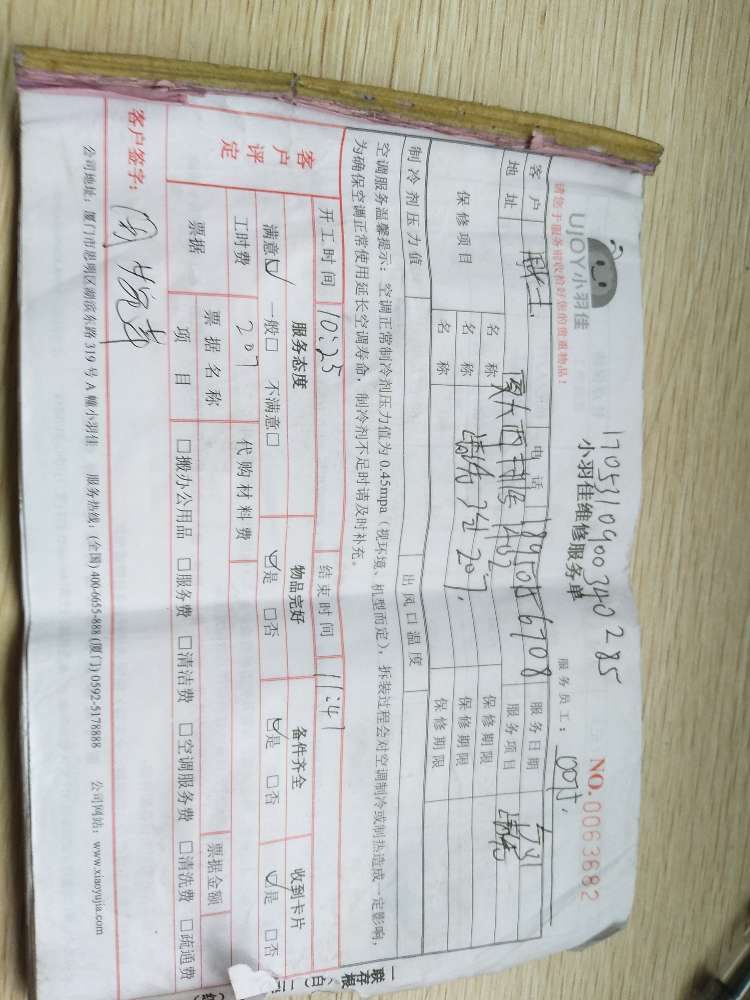 1705310900340285
UJOY小羽佳
小羽佳维修服务单
NO.0063682
请您于服务前收检好您的贵重物品!
服务员工:
客户
电话
服务日期
地址
服务项目
保修项目
名称
清洗3台 207
保修期限
名称
保修期限
名称
保修期限
制冷剂压力值
出风口温度
空调服务温馨提示:空调正常制冷剂压力值为0.45mpa(视环境、机型而定),拆装过程会对空调制冷或制热造成一定影响,
为确保空调正常使用延长空调寿命,制冷剂不足时请及时补充。
开工时间 10:25 结束时间 11:41
客户评定
服务态度 物品完好 备件齐全 收到卡片
满意☑ 一般□ 不满意□ ☑是 □否 ☑是 □否 ☑是 □否
工时费 207 代购材料费
票据 票据名称 票据金额
项目 □搬办公用品 □服务费 □清洁费 □空调服务费 □清洗费 □疏通费
客户签字:
公司地址:厦门市思明区湖滨东路319号A幢小羽佳 服务热线:(全国)400-6655-888(厦门)0592-5178888 公司网站:www.xiaoyujia.com